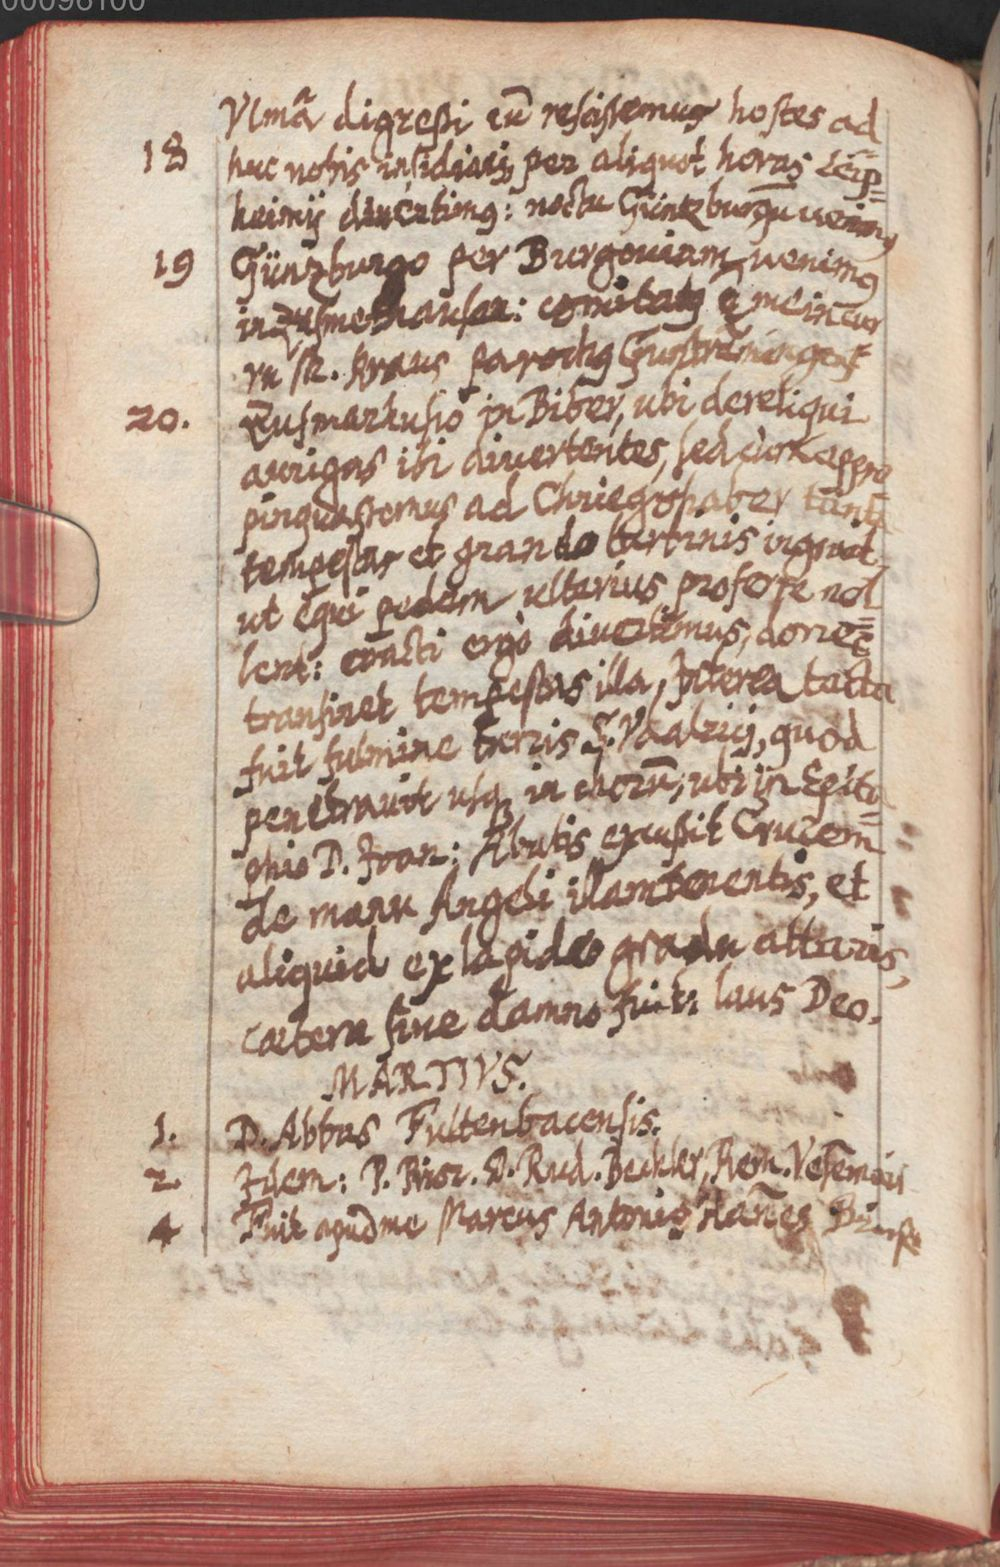 00098100
Vlmã digreßi cũ resciscemus hostes ad
18 huc nobis insidiarj per aliquot horas Leip=
heimij divertimus: noctu Güntzburgũ venimus
19 Günzburgo per Burgouiam venimus
in Zusmehausen: comitatus
M. Kraus parochus
20. Zusmarhusio in Biber, ubi dereliqui
aurigas ibi divertentes, sed cum appro
pinquassemus ad Chriegshaber tanta
tempestas et grando turbinis ingruit
ut equi pedem ulterius proferre nol=
lent: coacti ergo divertimus, donec
transiret tempestas illa, Interea tacta
fuit fulmine turris S. Vdalrici, quod
penetravit usq in chorũ, ubi in Epita=
phio D. Joan: Abbatis excussit Crucem
de manu Angeli illam tenentis, et
aliquid ex lapideo gradu altaris,
caetera sine damno fuit: laus Deo.
MARTIVS.
1. D. Abbas Fultenbacensis.
2. Idem: P. Prior. D. Rud. Beckler, Rem.
4 Fuit apud me Marcus Antonius